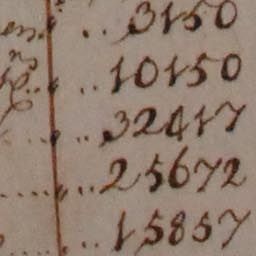 .. 3150
.. 10150
.. 32417
.. 25672
.. 15857